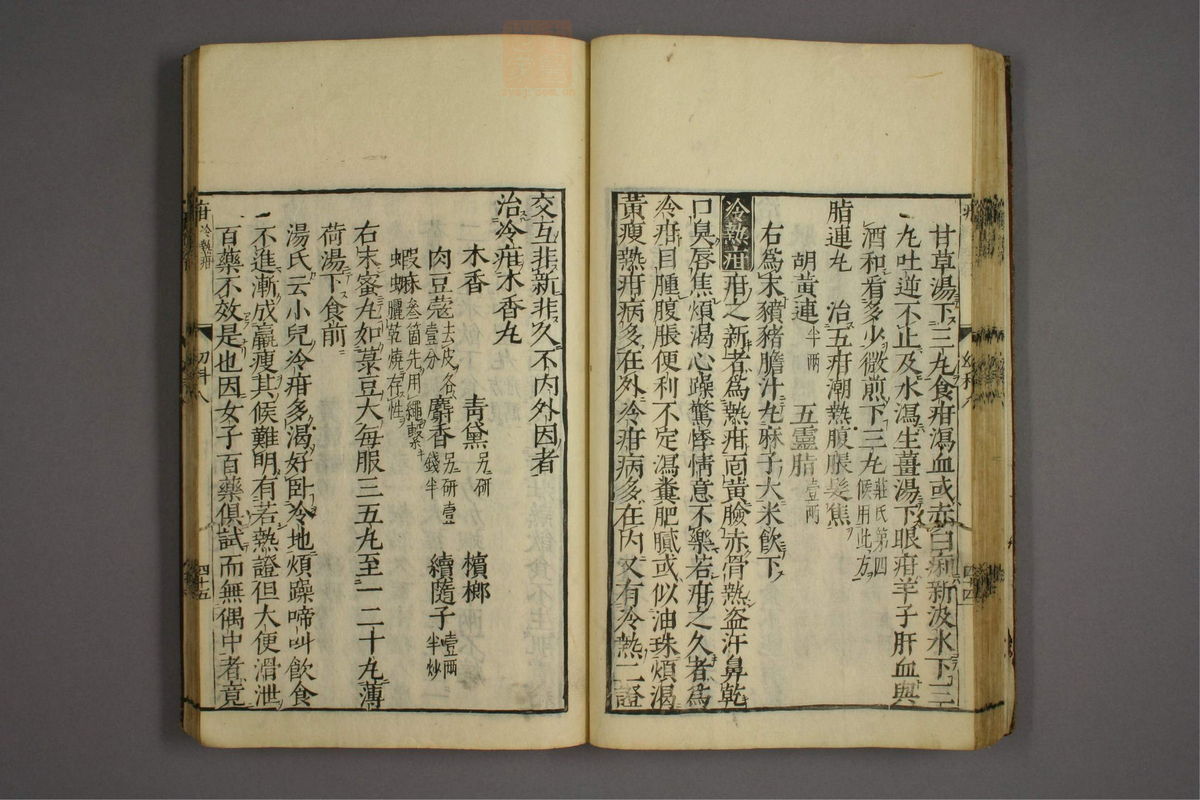 甘草湯下三丸食疳瀉血或赤白痢新汲水下三
丸吐逆不止及水瀉生薑湯下眼疳羊子肝血與
酒和看多少微煎下三丸莊氏第四候用此方
脂連丸 治五疳潮熱腹脹髮焦
胡黃連半兩 五靈脂壹兩
右爲末豶豬膽汁丸麻子大米飲下
冷熱疳 疳之新者爲熱疳面黃臉赤骨熱盗汗鼻乾
口臭唇焦煩渴心躁驚悸情意不樂若疳之久者爲
冷疳目腫腹脹便利不定瀉糞肥膩或似油珠煩渴
黃瘦熱疳病多在外冷疳病多在內又有冷熱二證
交互非新非久不內外因者
治冷疳木香丸
木香 靑黛另研 檳榔
肉豆蔲去皮各壹分 麝香另研壹錢半 續隨子壹兩半炒
蝦蟆叁箇先用繩繫䐑乾燒存性
右末蜜丸如菉豆大每服三五丸至一二十丸薄
荷湯下食前
湯氏云小兒冷疳多渴好臥冷地煩躁啼叫飲食
不進漸成羸瘦其候難明有若熱證但大便滑泄
百藥不效是也因女子百藥俱試而無偶中者竟
疳冷熱疳
幼科八
四十五